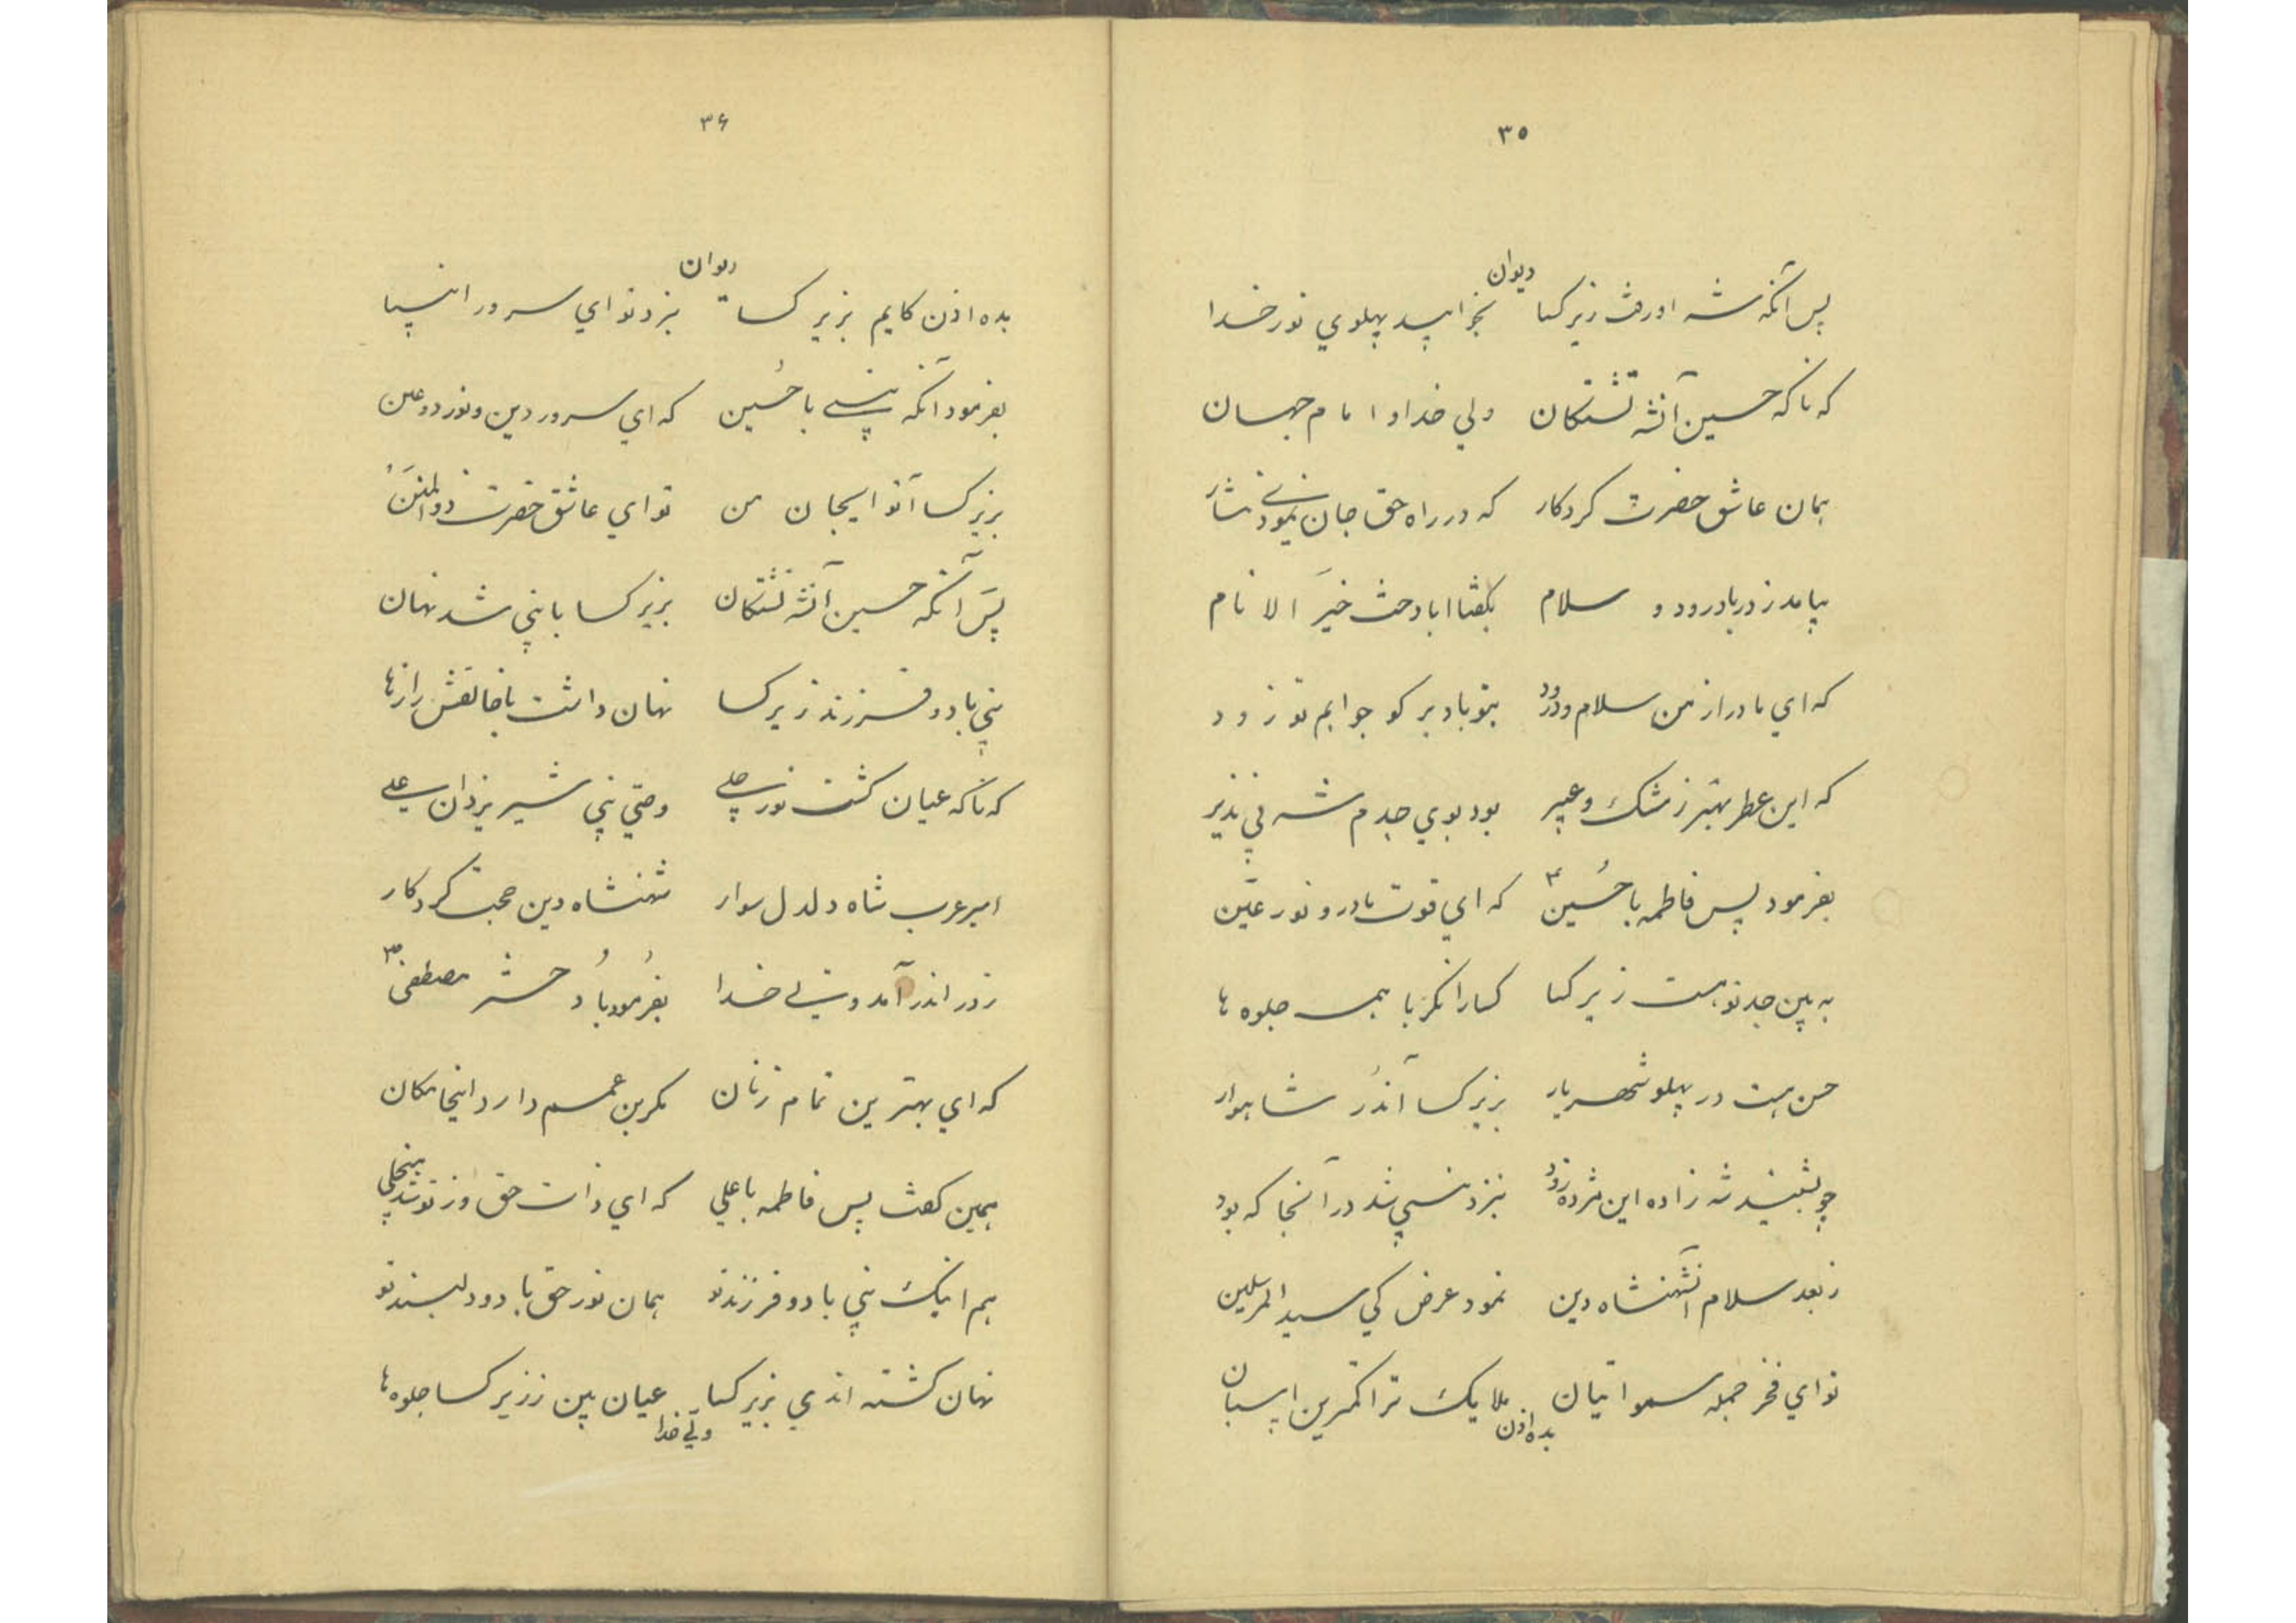 ۳۵
دیوان
پس آنکه شه اورفت زیر کسا بخوابید پهلوي نور خدا
که ناکه حسین آنشه تشنکان ولي خدا و امام جهان
همان عاشق حضرت کردکار که در راه حق جان نمودی نثار
بیامد ز در با درود و سلام بکفتا ابا دخت خیَر الانام
که اي مادر از من سلام و درود بتو باد برکو جوابم تو زود
که این عطر بهتر ز مشک و عبیر بود بوي جدم شه بي نذیر
بفرمود پس فاطمه با حُسین که اي قوت مادر و نور عَین
به بین جد تو هست زیر کسا کسا را نکر با همه جلوه ها
حسن هست در پهلو شهریار بزیر کسا آندُر شاهوار
چو بشنید شه زاده این مژده زود بنزد نبي شد در آنجا که بود
ز بعد سلام آنشهنشاه دین نمود عرض کي سید المرسلین
تو اي فخر جمله سمواتیان ملایک ترا کمترین پاسبان
بده اذن
۳۶
دیوان
بده اذن کایم بزیر کسا بنزد تو اي سرور انبیا
بفرمود آنکه نبی با حُسین که اي سرور دین و نور دو عین
بزیر کسا آ تو ایجان من تو اي عاشق حضرت ذوالمنَنُ
پسَ آنکه حسین آنشه تشنکان بزیر کسا با نبي شد نهان
نبي با دو فرزند زیر کسا نهان داشت با خالقش رازها
که ناکه عیان کشت نور جلی وصي نبي شیر یزدان علی
امیر عرب شاه دلدل سوار شهنشاه دین حجت کردکار
ز در اندر آمد ولی خدا بفرمُود با دُخت مصطفیٰ
که اي بهترین تمام زنان مکر بن عمم دارد اینجا مکان
همین کفت پس فاطمه با علي که اي ذات حق از تو شد منجلي
هم اینک نبي با دو فرزند تو همان نور حق با دو دلبند تو
نهان کشته اندي بزیر کسا عیان بین ز زیر کسا جلوه ها
ولی خدا